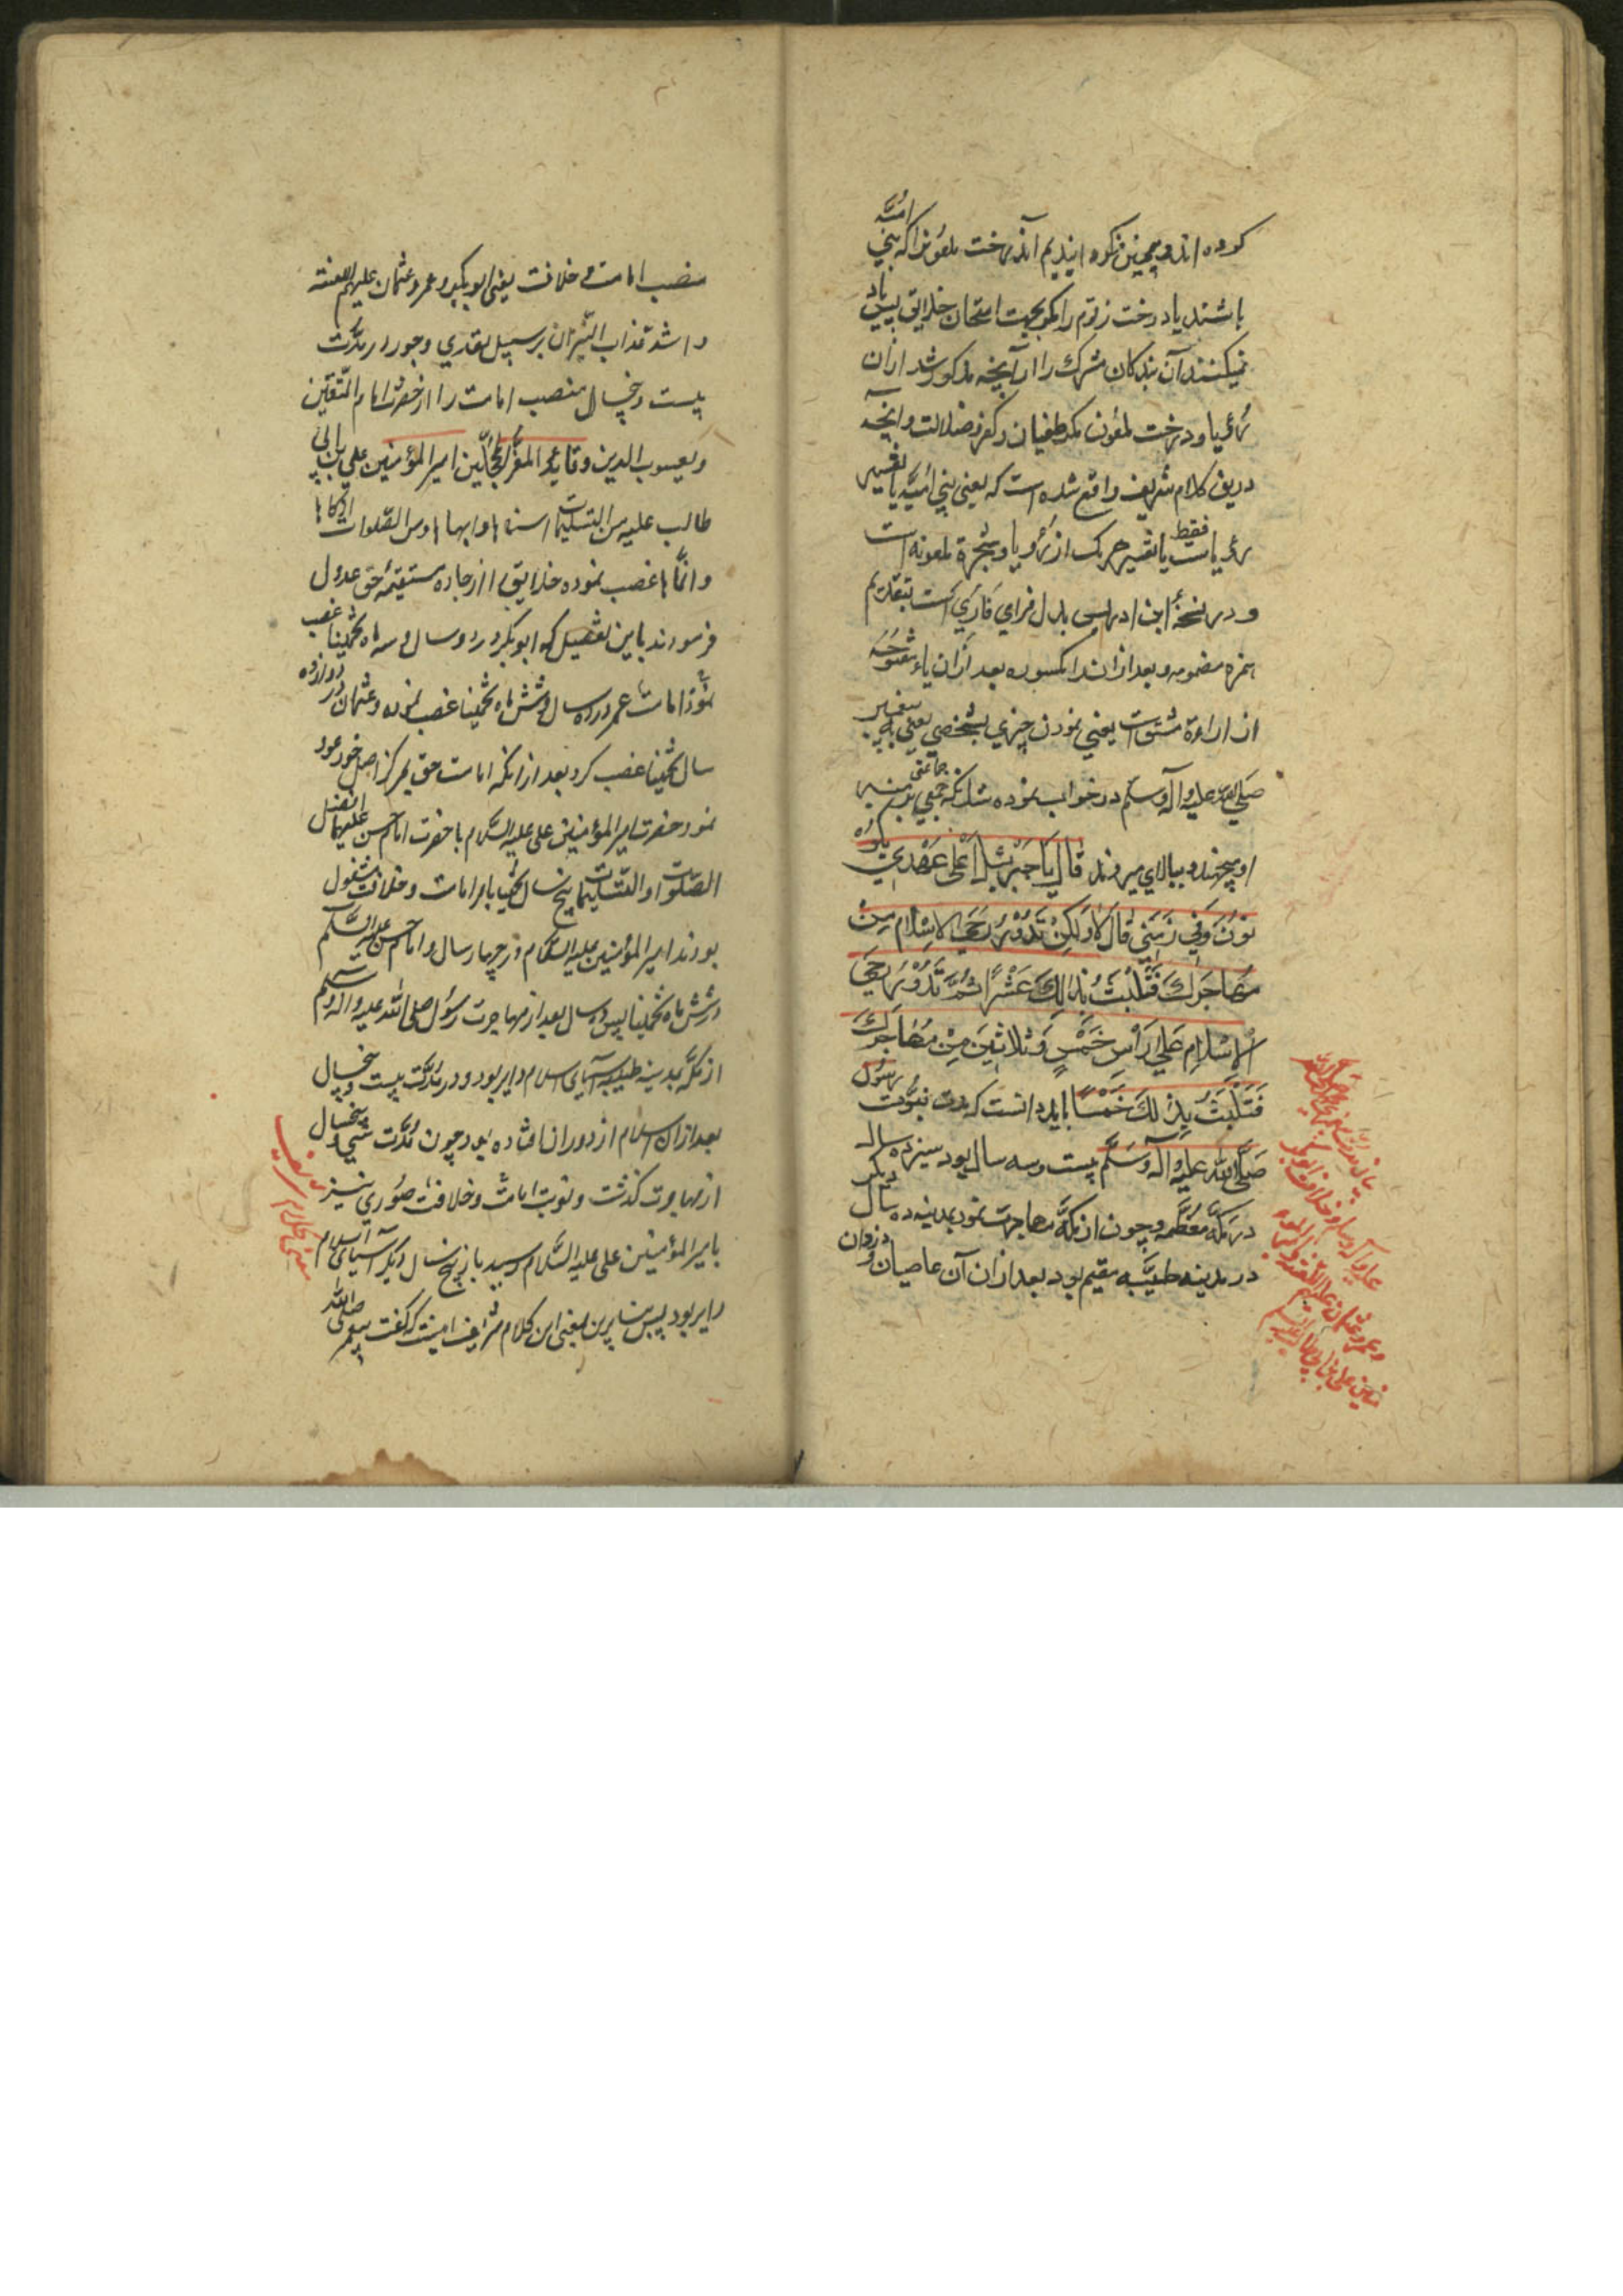 کرده اند و همچنین نکرده ایندیم آن درخت ملعونرا که بنی امیّه
باشند یا درخت زقوم را مگر بجهت امتحان خلایق پس یاد
نمیکنند آن بندکان مشرك را از آنچه مذکور شد ازان
رؤیا و درخت ملعون مکر طغیان و کفر و ضلالت و آنچه
درین کلام شریف واقع شده است که یعنی بنی امیّه یا تفسیر
رؤیاست فقط یا تفسیر هریک از رؤیا و شجرهٔ ملعونه است
و در نسخهٔ ابن ادریس بدل فرای فاری است بتقدیم
همزه مضمومه و بعد ازان را مکسوره بعد ازان یاء مفتوحه
از اراءة مشتق است یعنی نمودن چیزی بشخصی یعنی به پیغمبر
صلی الله علیه و آله وسلم در خواب نموده شد که جمعی بر منبر
او میجهند و ببالای میروند قال یَا جَبْرَئیلُ أَعَلیٰ عَهْدِي یَکُونُ
نُونَ وَفي زَمَني قَالَ لَا وَلٰکِنْ تَدُوْرُ رَحَی الاِسْلَامِ مِنْ
مُهَاجَرِكَ فَتَلْبَثُ بِذٰلِكَ عَشْرًا ثُمَّ تَدُوْرُ رَحَی
الْاِسْلَامِ عَلیٰ رَأْسِ خَمْسٍ وَثَلاثِیْنَ مِنْ مُهَاجَرِكَ
فَتَلْبَثُ بِذٰلِكَ خَمْسًا باید دانست که مدت نبوّت رسول
صَلَّی الله عَلَیْهِ وَآلِه وَسَلَّمَ بیست و سه سال بود سیزده سال
در مکّهٔ معظّمه و چون از مکّه مهاجرت نمود بمدینه ده سال دیکر
در مدینه طیّبه مقیم بود بعد ازان آن عاصیان و دزدان
منصب امامت و خلافت یعنی ابوبکر و عمر و عثمان علیهم اللعنة
و اشدّ عذاب النّیران بر سبیل تعدّی و جور در مدّت
بیست و پنجسال منصب امامت را از حضرت امام المتّقین
و یعسوب الدین و قاید الغرّ المحجّلین امیر المؤمنین علی بن ابی
طالب علیه من التسلیمات اسناها و ابهاها و من الصّلوات ازکاها
و انماها غصب نموده خلایق را از جادهٔ مستقیمهٔ حق عدول
فرمودند باین تفصیل که ابوبکر در دو سال و سه ماه تخمینا غصب
نمود امامت و عمر در ده سال و شش ماه تخمینا غصب نموده و عثمان در دوازده
سال تخمینا غصب کرد بعد از انکه امامت حق بمرکز اصل خود عود
نمود حضرت امیر المؤمنین علی علیه السّلام با حضرت امام حسن علیهما افضل
الصلوات و التسلیمات پنج سال تخمینا بامر امامت و خلافت مشغول
بودند امیر المؤمنین علیه السّلام در چهار سال و امام حسن علیه السّلام
در شش ماه تخمینا پس ده سال بعد از مهاجرت رسول صلی الله علیه و اله وسلم
از مکّه بمدینهٔ طیبه آسیای اسلام دایر بود و در مدّت بیست و پنجسال
بعد ازان اسلام از دوران افتاده بود چون مدّت سی و پنجسال
از مهاجرت کذشت و نوبت امامت و خلافت صوری نیز
بامیر المؤمنین علی علیه السّلام رسید باز پنج سال دیکر آسیای اسلام
دایر بود پس بنابرین معنی این کلام شریف اینست که گفت پیغمبر صلی الله
معنی کلام شریف